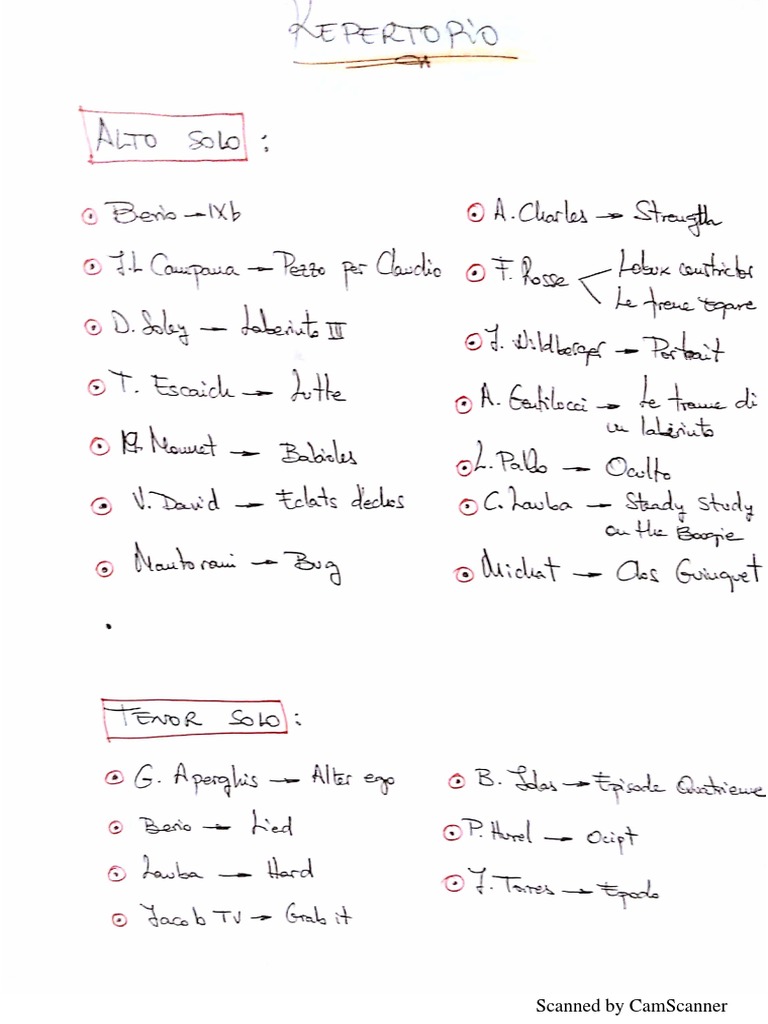 REPERTORIO
ALTO SOLO :
Berio → IXb
J.L Campana → Pezzo per Claudio
D. Soley — Laberinto III
T. Escaich → Lutte
Mounet → Babioles
V. David → Eclats d'echos
Mantovani → Bug
A. Charles → Strength
F. Rosse
Lobux constrictor
Le frene egare
J. Wildberger → Portrait
A. Gentilucci → Le trame di
un labirinto
L. Pablo → Oculto
C. Lauba → Steady study
on the Boogie
Michat → Clos Guinguet
TENOR SOLO :
G. Aperghis → Alter ego
Berio → Lied
Lauba → Hard
Jacob TV → Grab it
B. Jolas → Episode Quatrieme
P. Hurel → Opcit
J. Torres → Epodo
Scanned by CamScanner